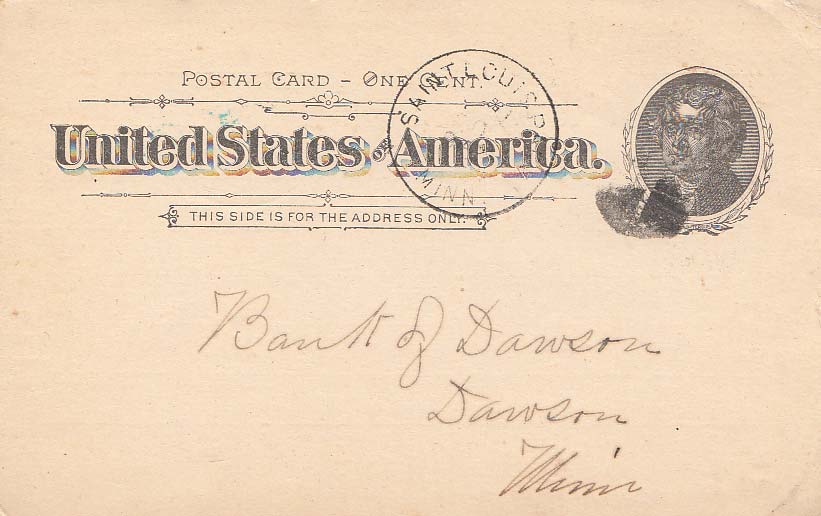 POSTAL CARD – ONE CENT.
United States of America.
THIS SIDE IS FOR THE ADDRESS ONLY.
SAINT LOUIS P
MINN
Bank of Dawson
Dawson
Minn